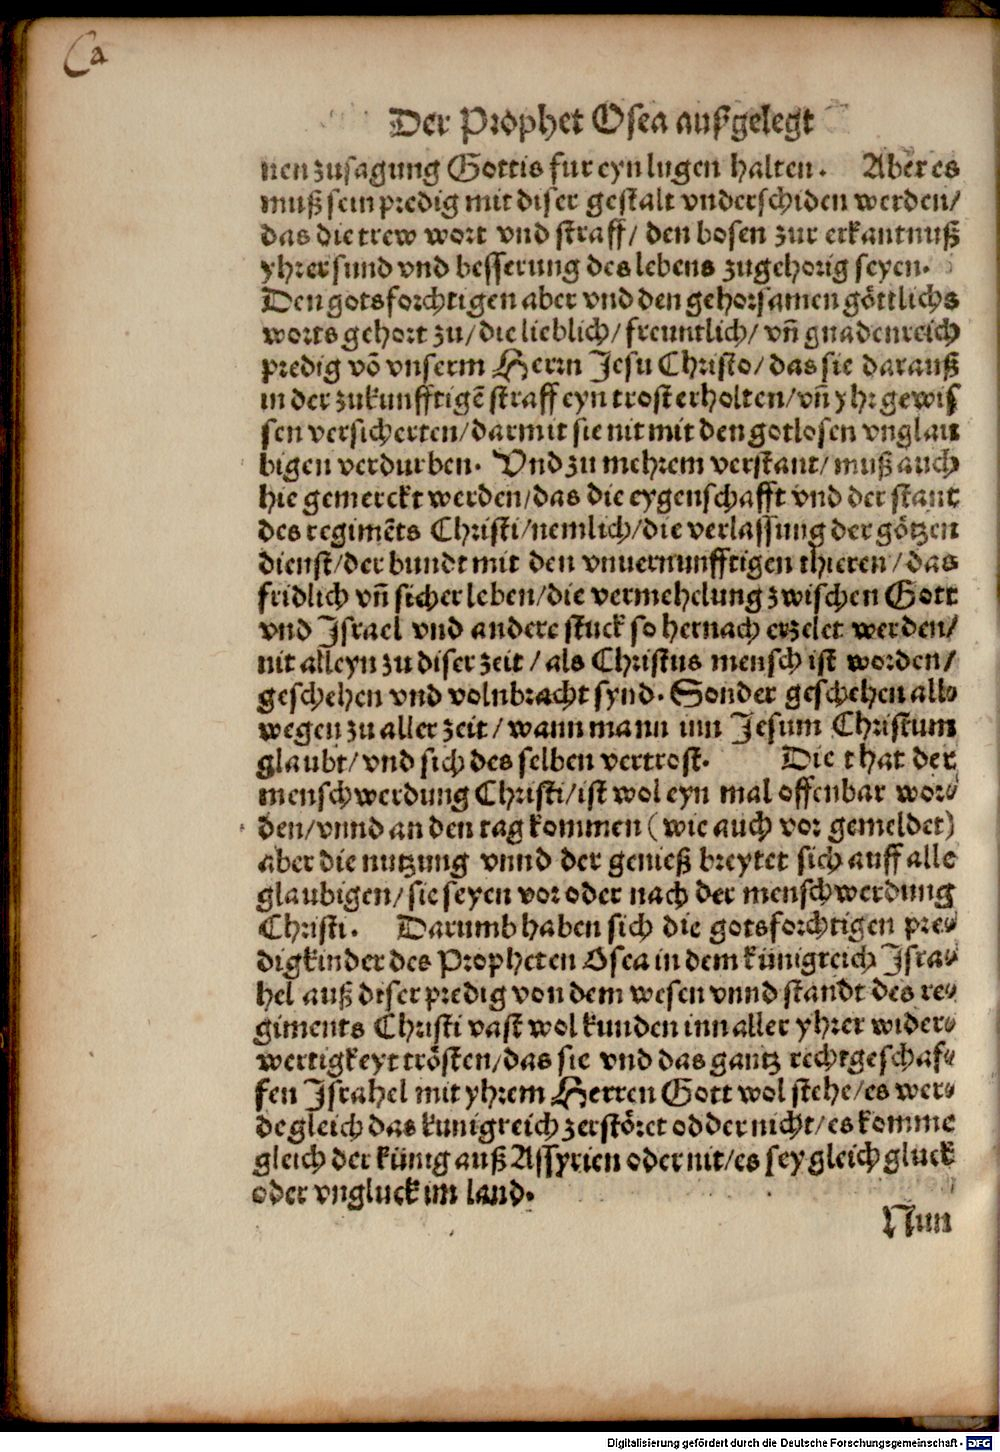 Ca
Der Prophet Osea außgelegt
nen zusagung Gottis fur eyn lugen halten. Aber es
muß sein predig mit diser gestalt vnderschiden werden/
das die trew wort vnd straff/ den bosen zur erkantnuß
yhrer sund vnd besserung des lebens zugehorig seyen.
Den gotsforchtigen aber vnd den gehorsamen göttlichs
worts gehort zu/ die lieblich/ freuntlich/ vñ gnadenreich
predig võ vnserm Herrn Jesu Christo/ das sie darauß
in der zukunfftigẽ straff eyn trost erholten/ vñ yhr gewis
sen versicherten/ darmit sie nit mit den gotlosen vnglau
bigen verdurben. Vnd zu mehrem verstant/ muß auch
hie gemerckt werden/ das die eygenschafft vnd der stant
des regimẽts Christi/ nemlich/ die verlassung der götzen
dienst/ der bundt mit den vnuernunfftigen thieren/ das
fridlich vñ sicher leben/ die vermehelung zwischen Gott
vnd Israel vnd andere stuck so hernach erzelet werden/
nit alleyn zu diser zeit/ als Christus mensch ist worden/
geschehen vnd volnbracht synd. Sonder geschehen alle⸗
wegen zu aller zeit/ wann mann inn Jesum Christum
glaubt/ vnd sich des selben vertrost. Die that der
menschwerdung Christi/ ist wol eyn mal offenbar wor⸗
den/ vnnd an den tag kommen (wie auch vor gemeldet)
aber die nutzung vnnd der genieß breytet sich auff alle
glaubigen/ sie seyen vor oder nach der menschwerdung
Christi. Darumb haben sich die gotsforchtigen pre⸗
digkinder des Propheten Osea in dem künigreich Isra⸗
hel auß diser predig von dem wesen vnnd standt des re⸗
giments Christi vast wol kunden inn aller yhrer wider⸗
wertigkeyt trösten/ das sie vnd das gantz rechtgeschaf⸗
fen Israhel mit yhrem Herren Gott wol stehe/ es wer⸗
de gleich das kunigreich zerstöret odder nicht/ es komme
gleich der künig auß Assyrien oder nit/ es sey gleich gluck
oder vngluck im land.
Nun
Digitalisierung gefördert durch die Deutsche Forschungsgemeinschaft - DFG